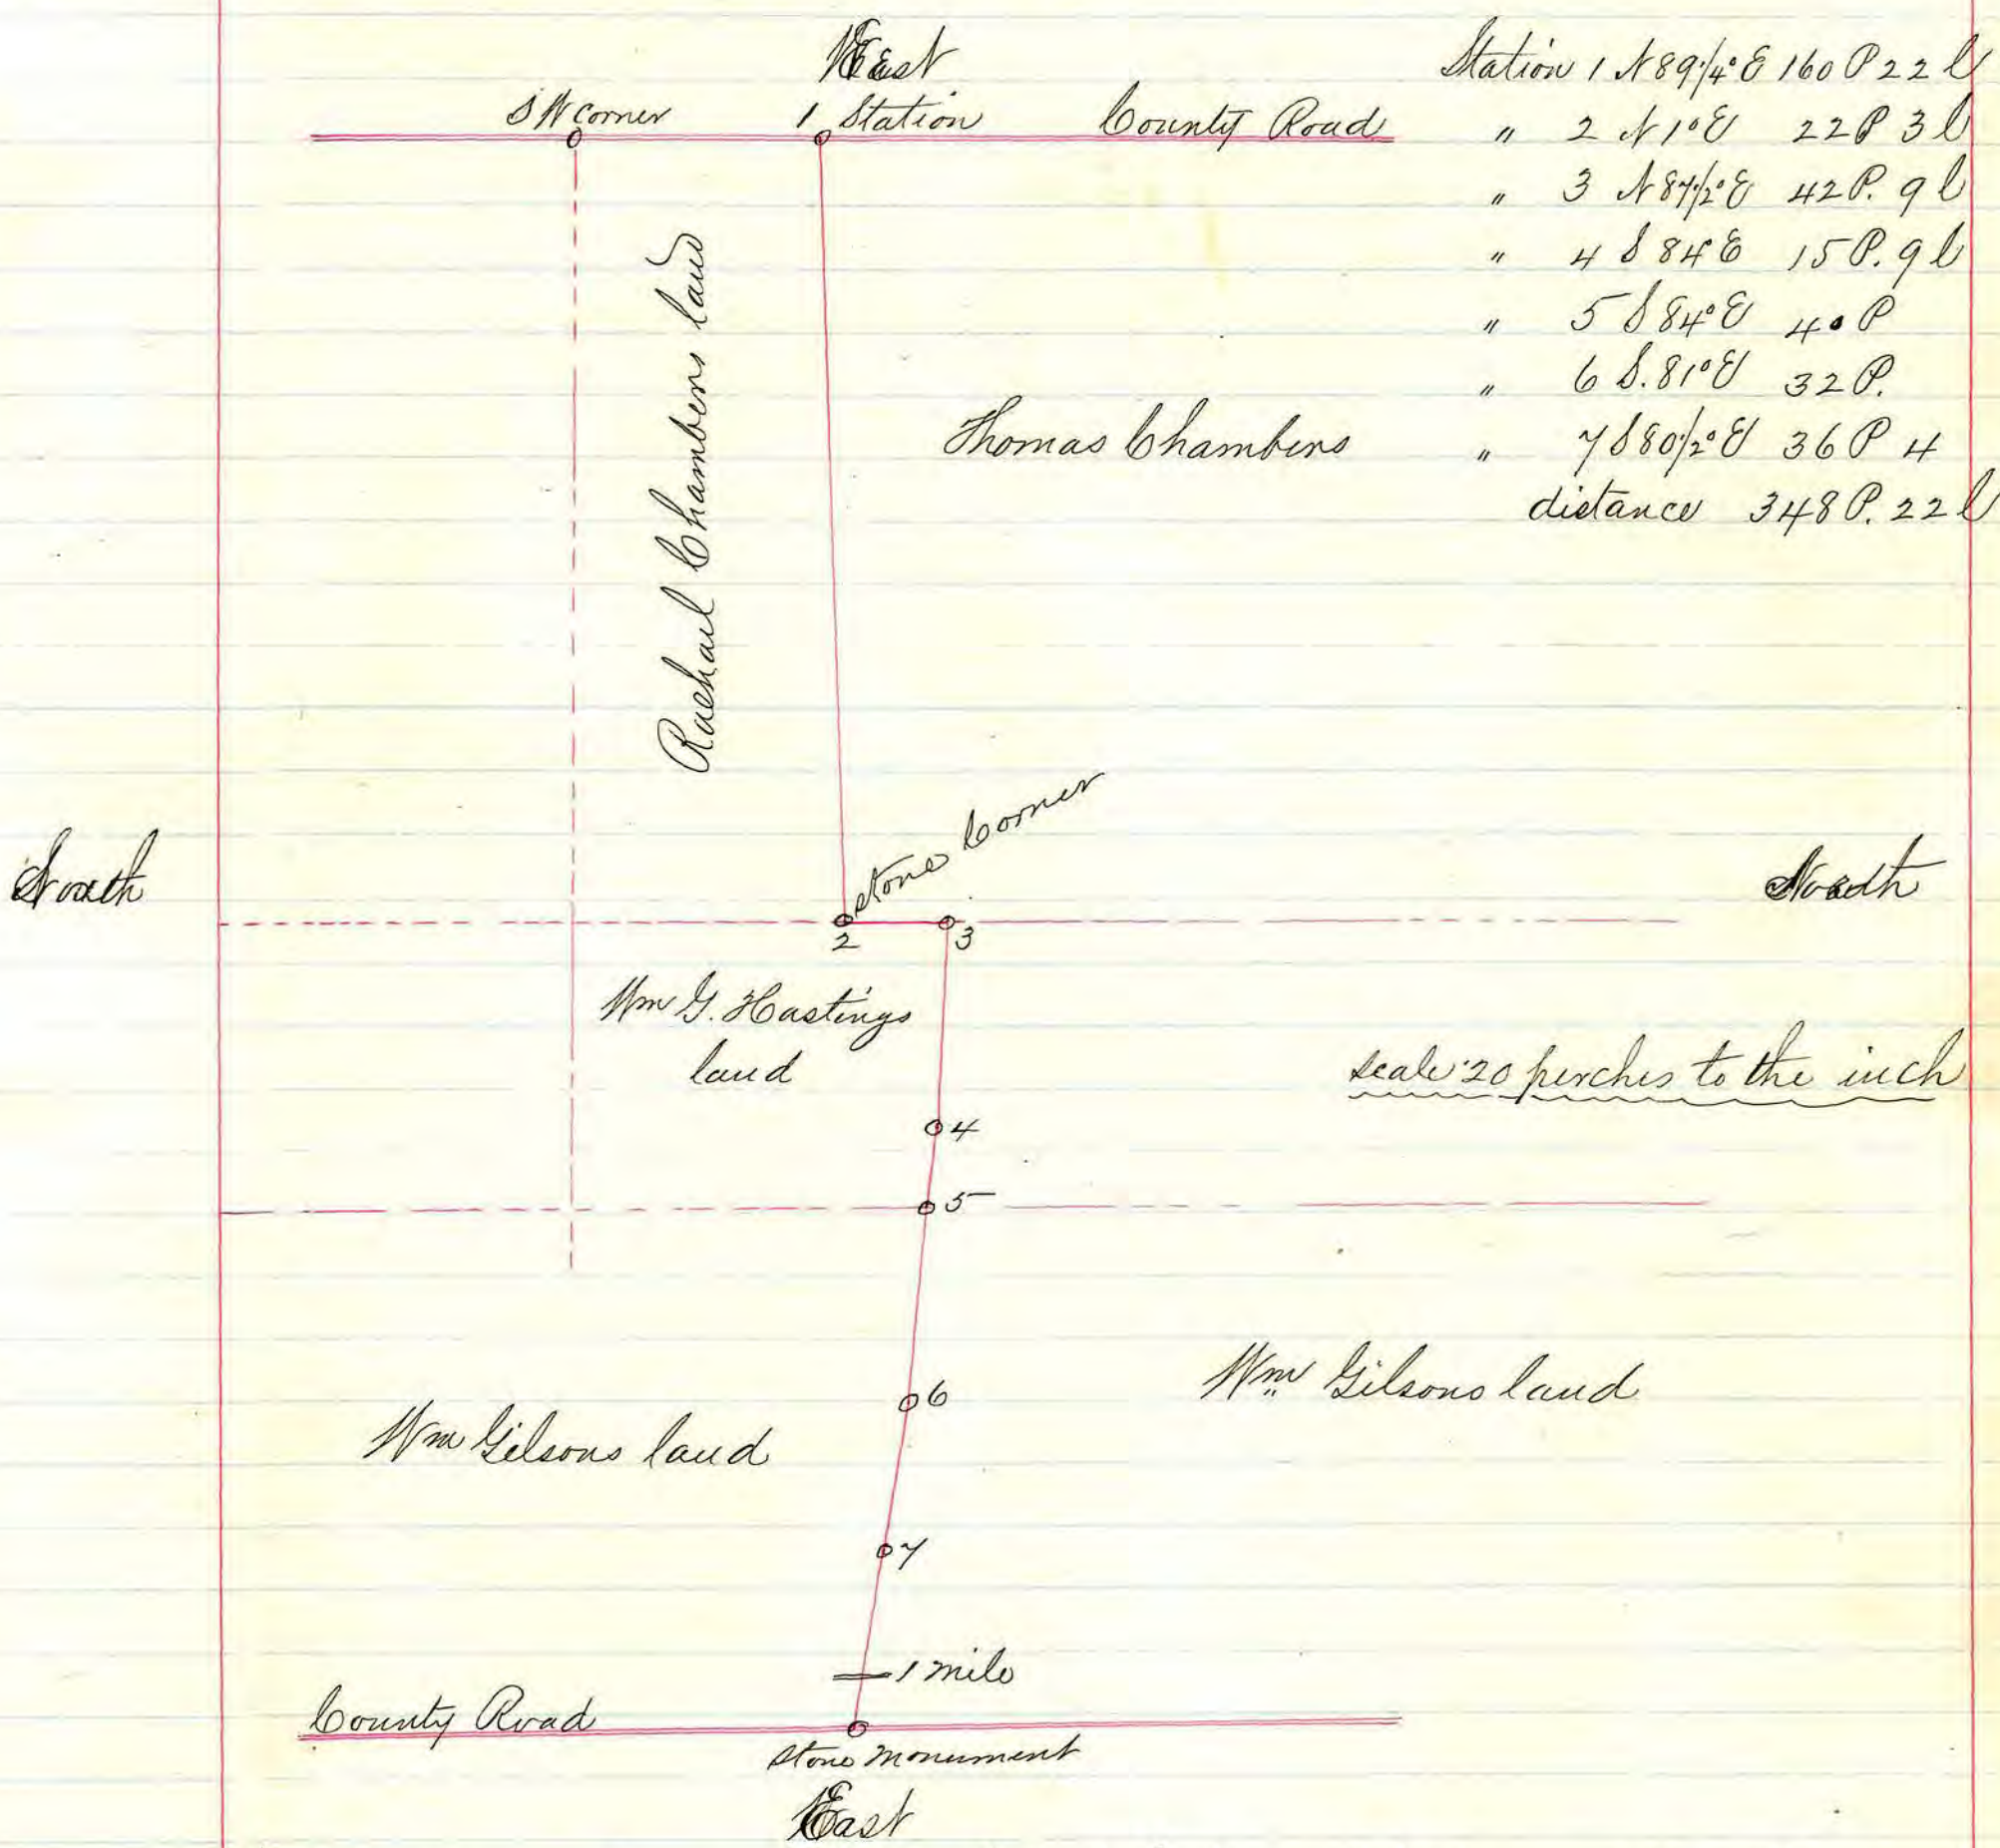 West
S W Corner
1 Station
County Road
Station 1 N 89 1/4° E 160 P 22 l
" 2 N 1° E 22 P 3 l
" 3 N 87 1/2° E 42 P. 9 l
" 4 S 84 E 15 P. 9 l
" 5 S 84° E 40 P
" 6 S. 81° E 32 P.
" 7 S 80 1/2° E 36 P 4
distance 348 P. 22 l
Rachael Chambers land
Thomas Chambers
stone Corner
South
North
2
3
Wm G. Hastings
land
scale 20 perches to the inch
4
5
6
Wm Gilsons land
Wm Gilsons land
7
1 mile
County Road
stone monument
East